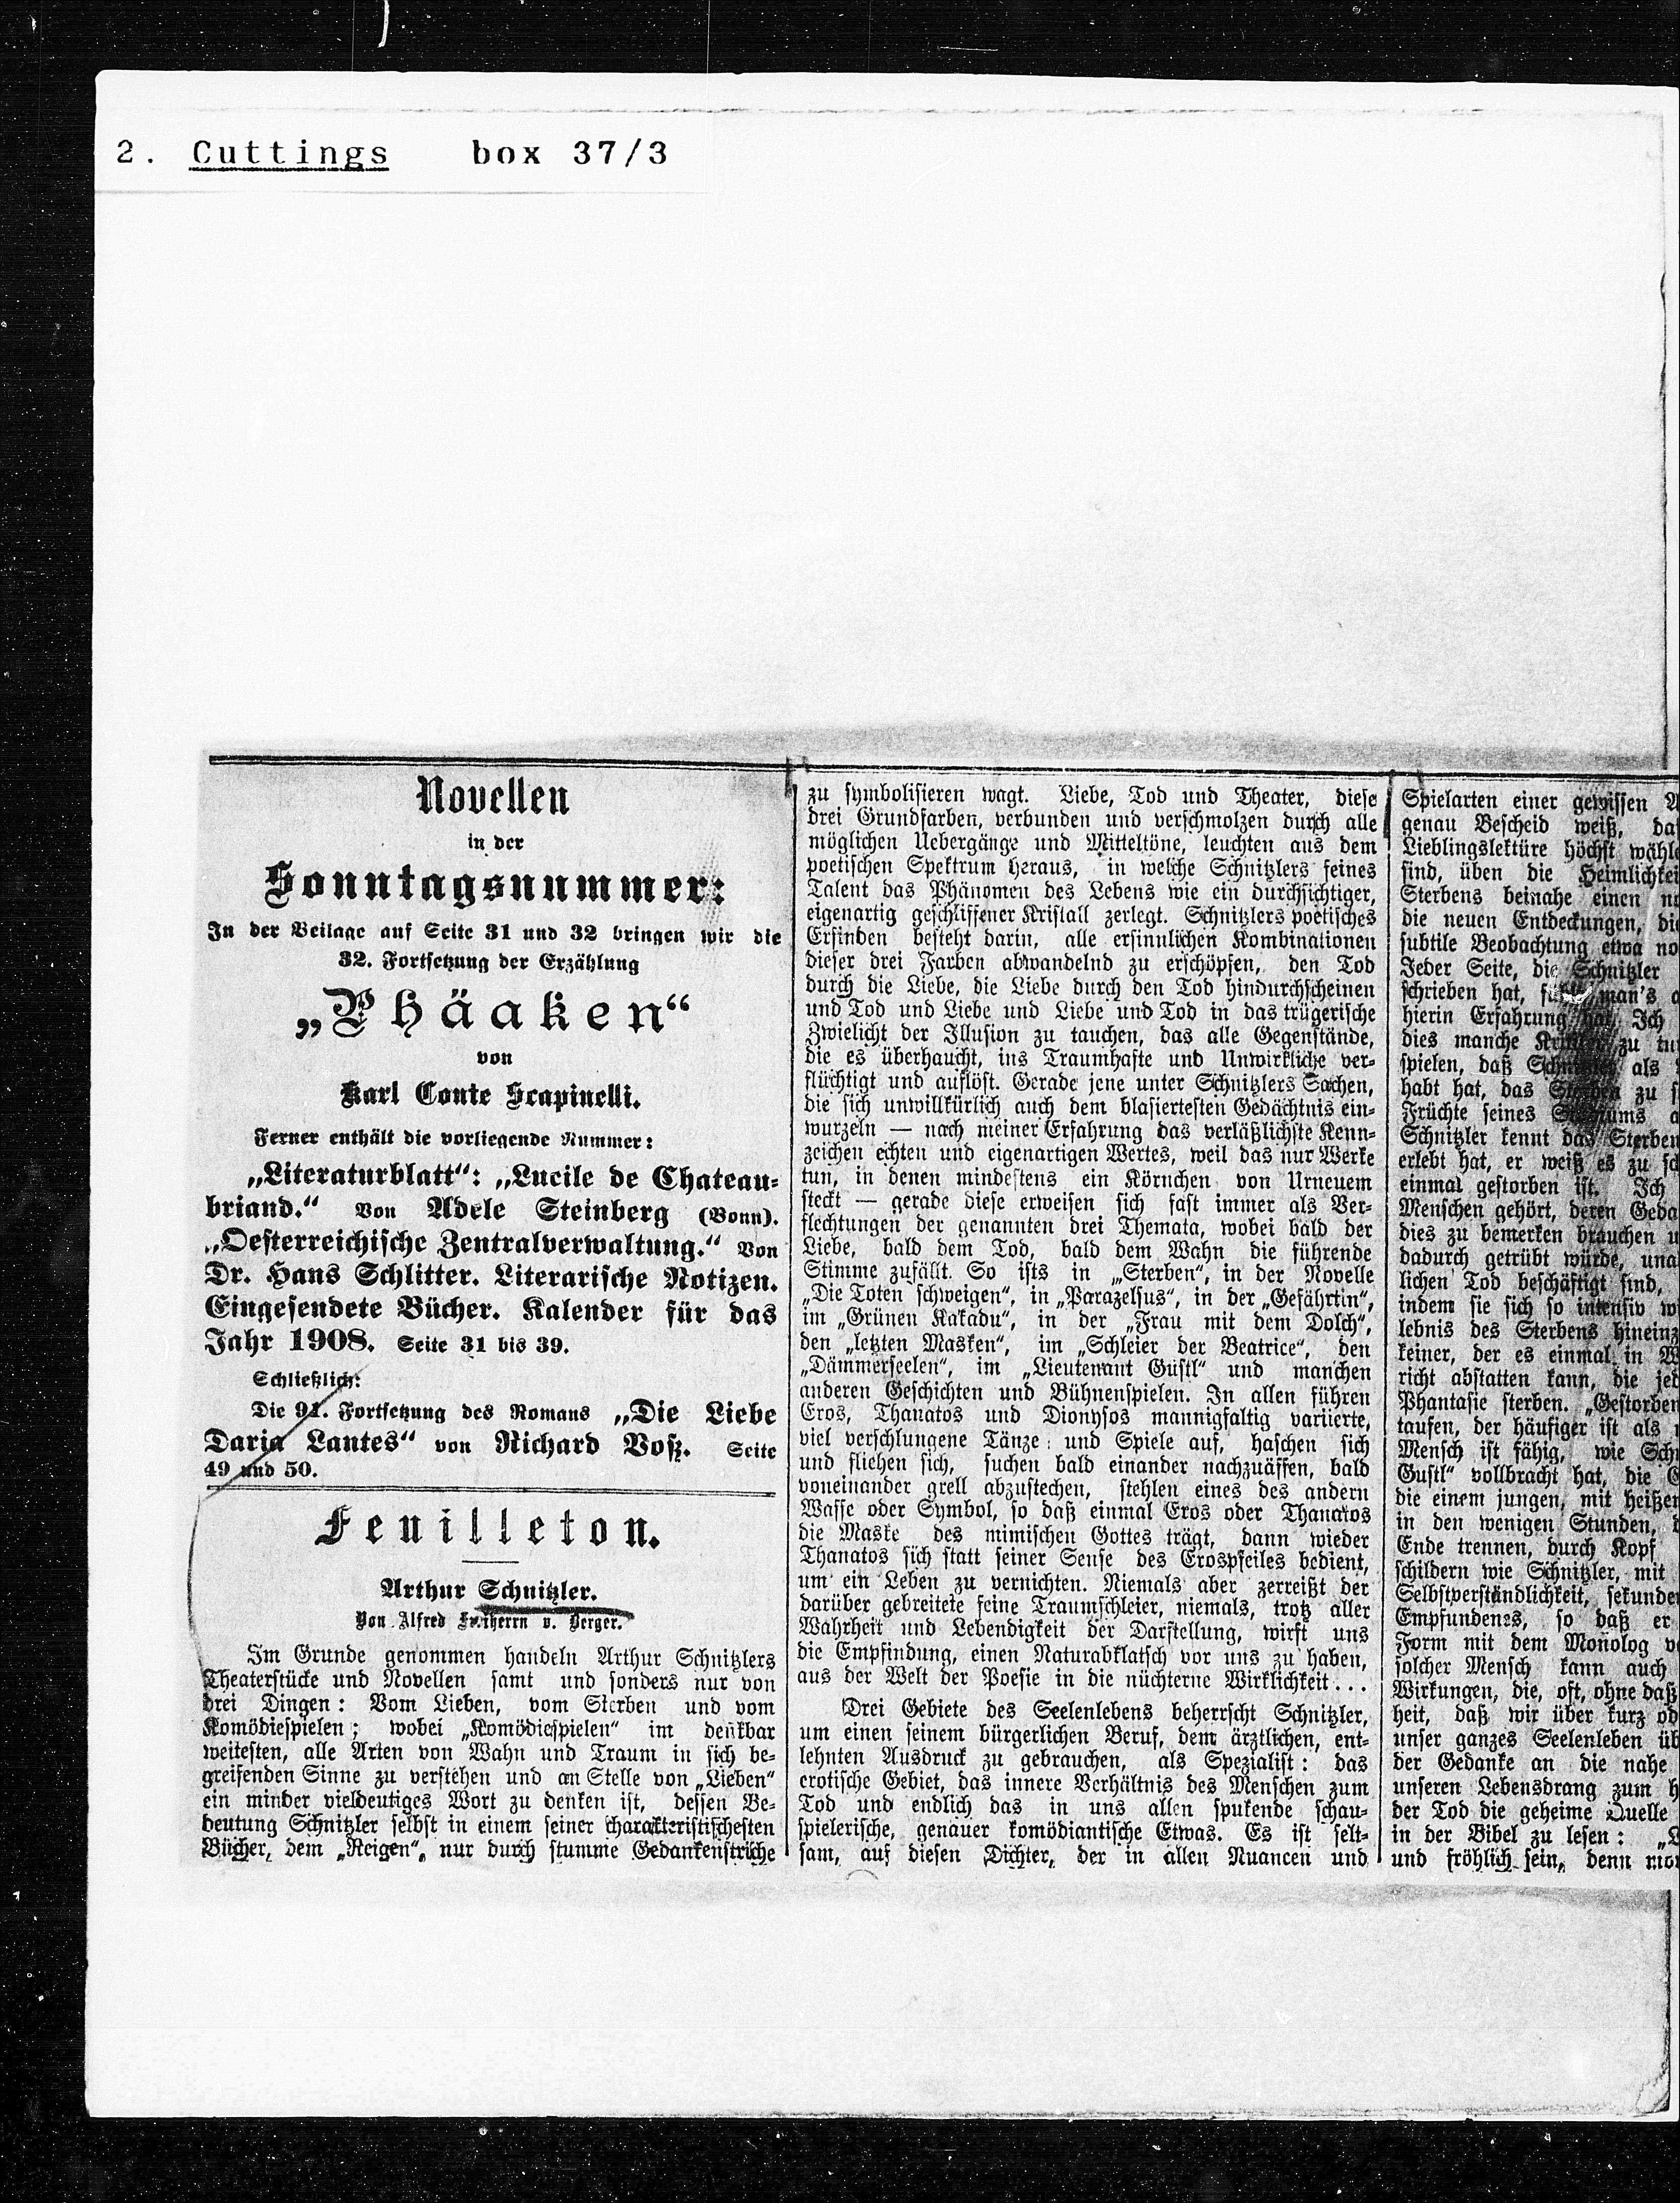 2. Cuttings box 37/3
Novellen
in der
Sonntagsnummer:
In der Beilage auf Seite 31 und 32 bringen wir die
32. Fortsetzung der Erzählung
„Phäaken“
von
Karl Conte Scapinelli.
Ferner enthält die vorliegende Nummer:
„Literaturblatt“: „Lucile de Chateau-
briand.“ Von Adele Steinberg (Bonn).
„Oesterreichische Zentralverwaltung.“ Von
Dr. Hans Schlitter. Literarische Notizen.
Eingesendete Bücher. Kalender für das
Jahr 1908. Seite 31 bis 39.
Schließlich:
Die 91. Fortsetzung des Romans „Die Liebe
Daria Lantes“ von Richard Voß. Seite
49 und 50.
Feuilleton.
Arthur Schnitzler.
Von Alfred Freiherrn v. Berger.
Im Grunde genommen handeln Arthur Schnitzlers
Theaterstücke und Novellen samt und sonders nur von
drei Dingen: Vom Lieben, vom Sterben und vom
Komödiespielen; wobei „Komödiespielen“ im denkbar
weitesten, alle Arten von Wahn und Traum in sich be-
greifenden Sinne zu verstehen und an Stelle von „Lieben“
ein minder vieldeutiges Wort zu denken ist, dessen Be-
deutung Schnitzler selbst in einem seiner charakteristischesten
Bücher, dem „Reigen“, nur durch stumme Gedankenstriche
zu symbolisieren wagt. Liebe, Tod und Theater, diese
drei Grundfarben, verbunden und verschmolzen durch alle
möglichen Uebergänge und Mitteltöne, leuchten aus dem
poetischen Spektrum heraus, in welche Schnitzlers feines
Talent das Phänomen des Lebens wie ein durchsichtiger,
eigenartig geschliffener Kristall zerlegt. Schnitzlers poetisches
Erfinden besteht darin, alle ersinnlichen Kombinationen
dieser drei Farben abwandelnd zu erschöpfen, den Tod
durch die Liebe, die Liebe durch den Tod hindurchscheinen
und Tod und Liebe und Liebe und Tod in das trügerische
Zwielicht der Illusion zu tauchen, das alle Gegenstände,
die es überhaucht, ins Traumhafte und Unwirkliche ver-
flüchtigt und auflöst. Gerade jene unter Schnitzlers Sachen,
die sich unwillkürlich auch dem blasiertesten Gedächtnis ein-
wurzeln — nach meiner Erfahrung das verläßlichste Kenn-
zeichen echten und eigenartigen Wertes, weil das nur Werke
tun, in denen mindestens ein Körnchen von Urneuem
steckt — gerade diese erweisen sich fast immer als Ver-
flechtungen der genannten drei Themata, wobei bald der
Liebe, bald dem Tod, bald dem Wahn die führende
Stimme zufällt. So ists in „Sterben“, in der Novelle
„Die Toten schweigen“, in „Parazelsus“, in der „Gefährtin“,
im „Grünen Kakadu“, in der „Frau mit dem Dolch“,
den „letzten Masken“, im „Schleier der Beatrice“, den
„Dämmerseelen“, im „Lieutenant Gustl“ und manchen
anderen Geschichten und Bühnenspielen. In allen führen
Eros, Thanatos und Dionysos mannigfaltig variierte,
viel verschlungene Tänze und Spiele auf, haschen sich
und fliehen sich, suchen bald einander nachzuäffen, bald
voneinander grell abzustechen, stehlen eines des andern
Waffe oder Symbol, so daß einmal Eros oder Thanatos
die Maske des mimischen Gottes trägt, dann wieder
Thanatos sich statt seiner Sense des Erospfeiles bedient,
um ein Leben zu vernichten. Niemals aber zerreißt der
darüber gebreitete feine Traumschleier, niemals, trotz aller
Wahrheit und Lebendigkeit der Darstellung, wirft uns
die Empfindung, einen Naturabklatsch vor uns zu haben,
aus der Welt der Poesie in die nüchterne Wirklichkeit...
Drei Gebiete des Seelenlebens beherrscht Schnitzler,
um einen seinem bürgerlichen Beruf, dem ärztlichen, ent-
lehnten Ausdruck zu gebrauchen, als Spezialist: das
erotische Gebiet, das innere Verhältnis des Menschen zum
Tod und endlich das in uns allen spukende schau-
spielerische, genauer komödiantische Etwas. Es ist selt-
sam, auf diesen Dichter, der in allen Nuancen und
Spielarten einer gewissen
genau Bescheid weiß,
Lieblingslektüre höchst
sind, üben die
Sterbens beinahe einen
die neuen Entdeckungen,
subtile Beobachtung etwa
Jeder Seite, die Schnitzler
schrieben hat, man's
hierin Erfahrung hat. Ich
dies manche zu
spielen, daß als
habt hat, das zu
Früchte seines
Schnitzler kennt das
erlebt hat, er weiß es zu
einmal gestorben ist. Ich
Menschen gehört, deren
dies zu bemerken brauchen
dadurch getrübt würde,
lichen Tod beschäftigt sind,
indem sie sich so intensiv
lebnis des Sterbens
keiner, der es einmal in
richt abstatten kann, die
Phantasie sterben.
taufen, der häufiger ist als
Mensch ist fähig, wie
Gustl“ vollbracht hat, die
die einem jungen, mit
in den wenigen Stunden,
Ende trennen, durch Kopf
schildern wie Schnitzler, mit
Selbstverständlichkeit,
Empfundenes, so daß er
Form mit dem Monolog
solcher Mensch kann auch
Wirkungen, die, oft, ohne daß
heit, daß wir über kurz
unser ganzes Seelenleben
der Gedanke an die nahe
unseren Lebensdrang zum
der Tod die geheime Quelle
in der Bibel zu lesen:
und fröhlich sein, denn